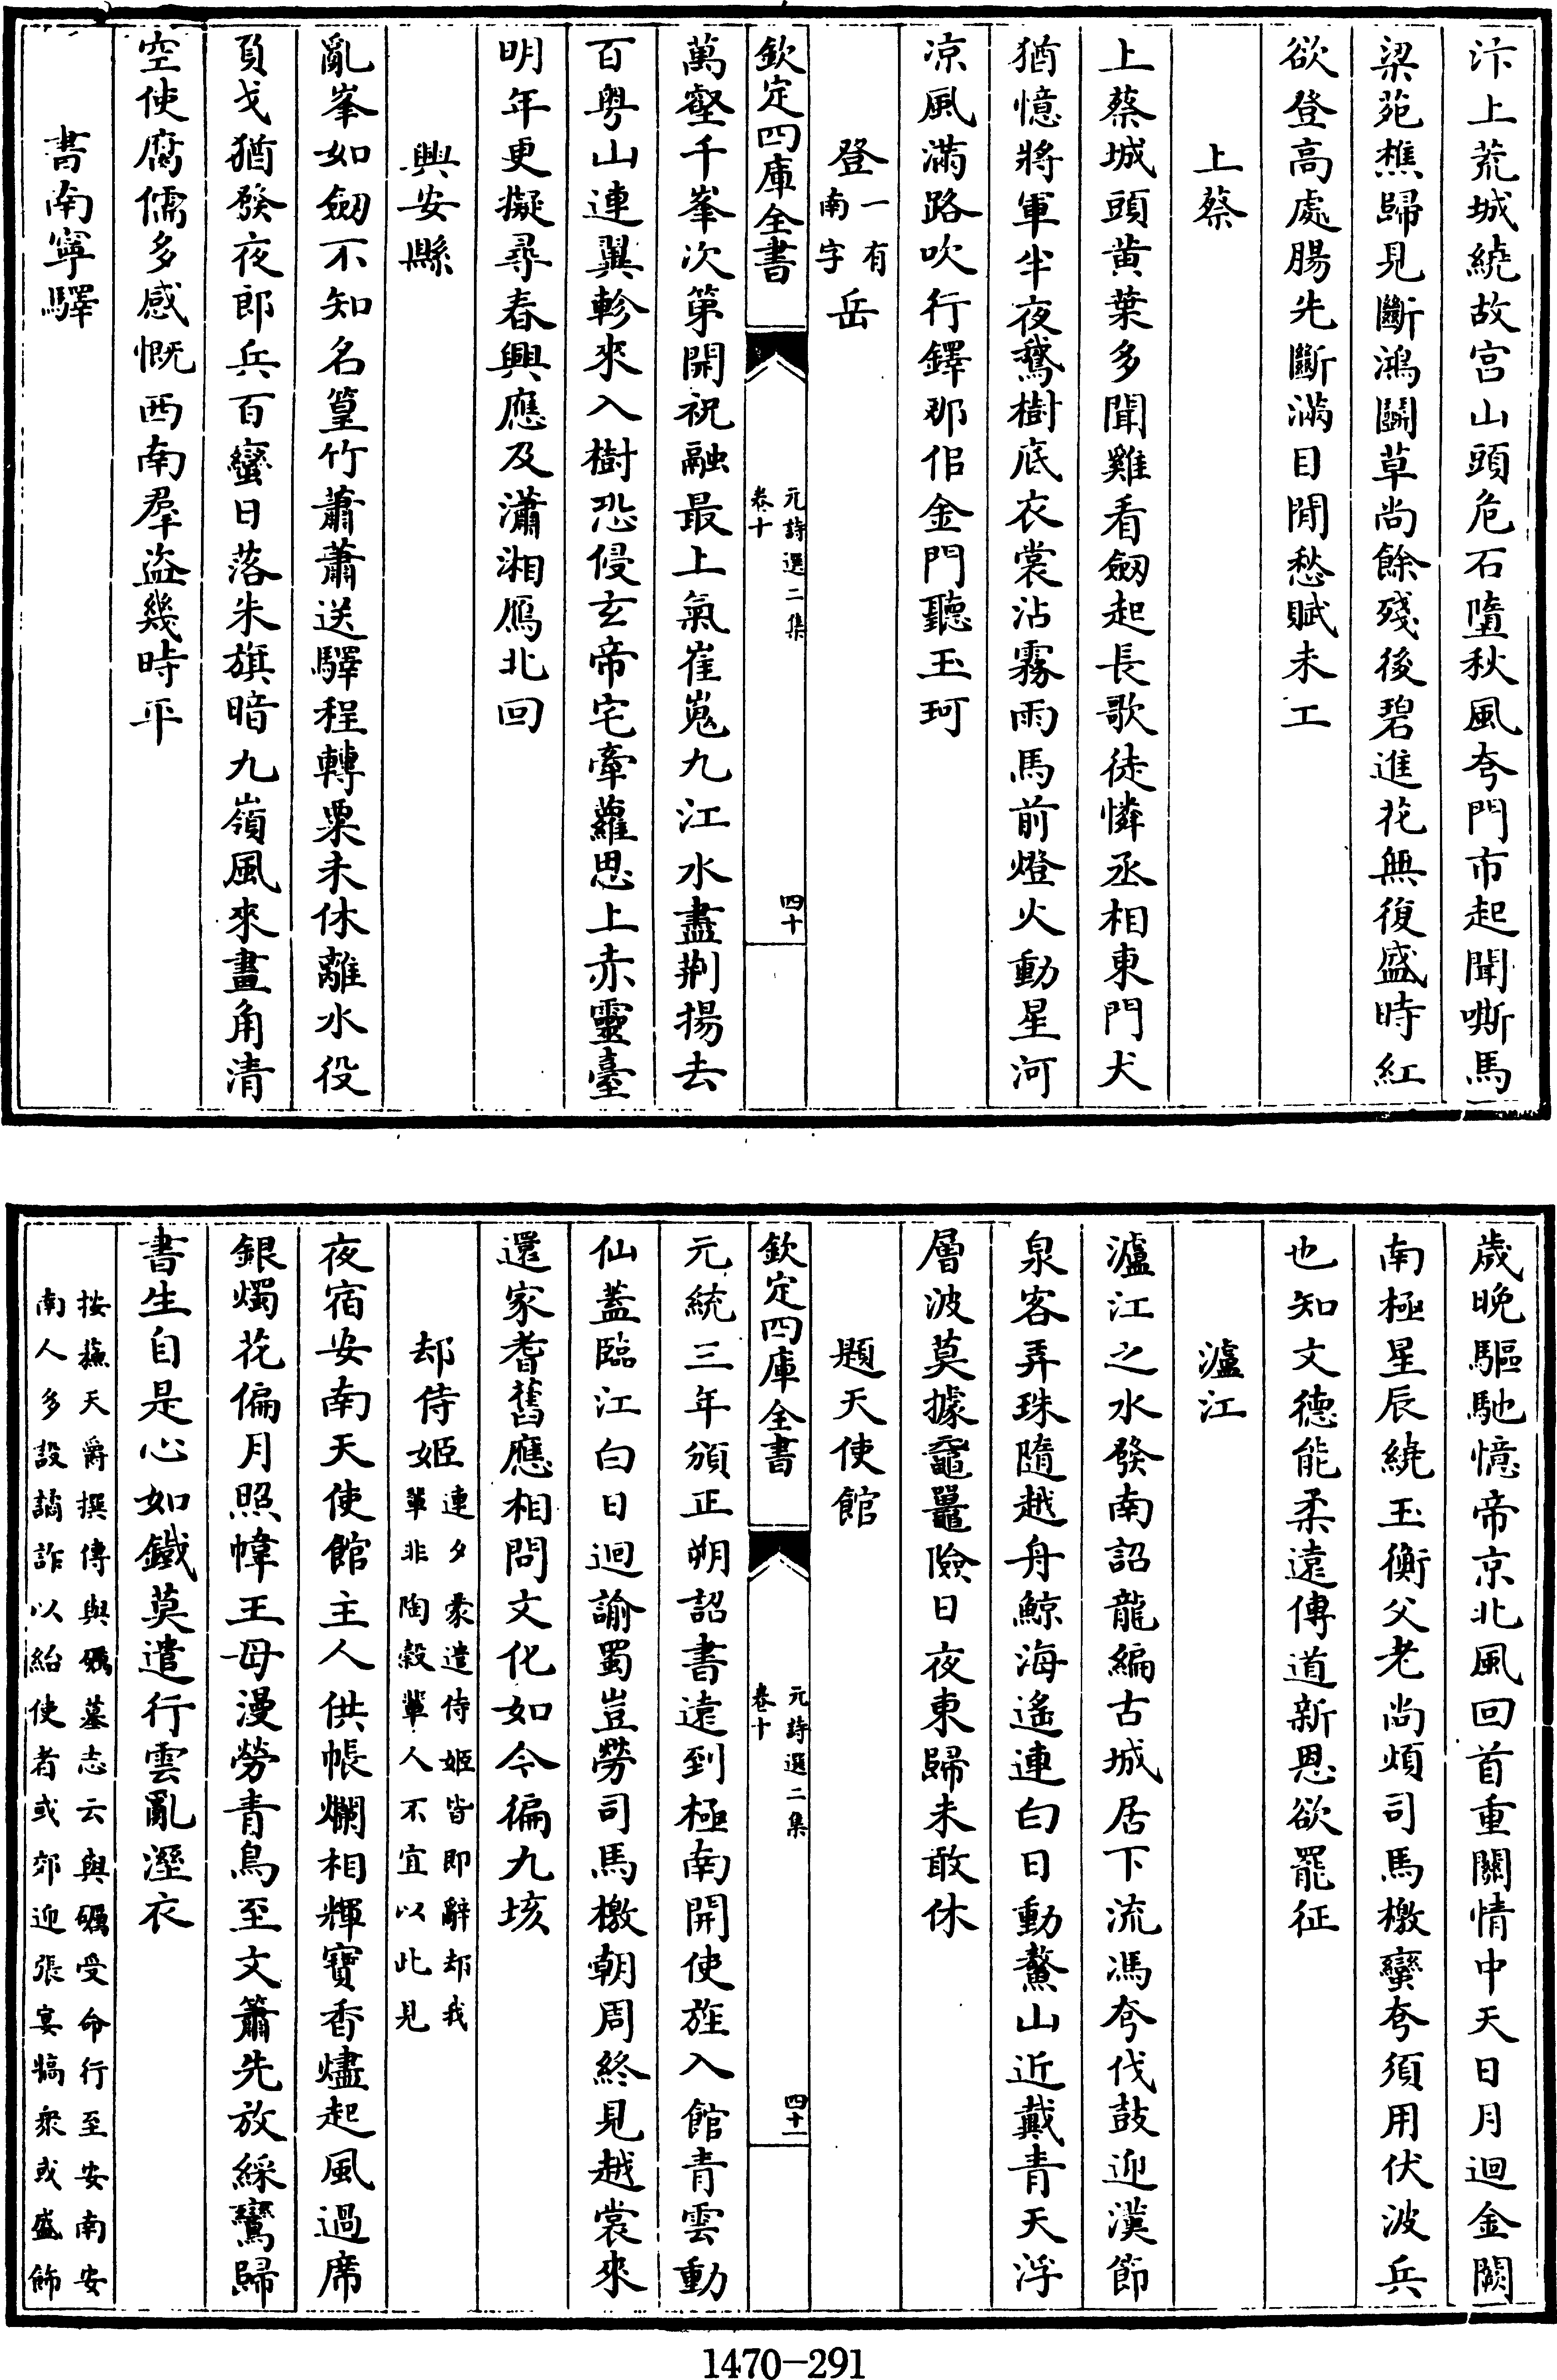 汴上荒城繞故宫山頭危石墮秋風夸門市起聞嘶馬
梁苑樵歸見斷鴻鬭草尚餘殘後碧進花無復盛時紅
欲登高處腸先斷滿目閒愁賦未工
上蔡
上蔡城頭黄葉多聞雞看劒起長歌徒憐丞相東門犬
猶憶將軍半夜鵞樹底衣裳沾霧雨馬前燈火動星河
凉風滿路吹行鐸那作金門聽玉珂
登一有南字岳
欽定四庫全書
元詩選二集
卷十
四十
萬壑千峯次第開祝融最上氣崔嵬九江水盡荆揚去
百粤山連翼軫來入樹恐侵玄帝宅牽蘿思上赤靈臺
明年更擬尋春興應及瀟湘鴈北回
興安縣
亂峯如劒不知名篁竹蕭蕭送驛程轉粟未休離水役
負戈猶發夜郎兵百蠻日落朱旗暗九嶺風來畫角清
空使腐儒多感慨西南羣盜幾時平
書南寧驛
歲晚驅馳憶帝京北風回首重關情中天日月迴金闕
南極星辰繞玉衡父老尚煩司馬檄蠻夸須用伏波兵
也知文德能柔遠傳道新恩欲罷征
瀘江
瀘江之水發南詔龍編古城居下流馮夸伐鼓迎漢節
泉客弄珠隨越舟鯨海遙連白日動鰲山近戴青天浮
層波莫據黿鼉險日夜東歸未敢休
題天使館
欽定四庫全書
元詩選二集
卷十
四十一
元統三年頒正朔詔書遠到極南開使旌入館青雲動
仙蓋臨江白日迴諭蜀豈勞司馬檄朝周終見越裳來
還家耆舊應相問文化如今徧九垓
却侍姬連夕䝉遣侍姬皆即辭却我
輩非陶穀輩人不宜以此見
夜宿安南天使館主人供帳爛相輝寶香燼起風過席
銀燭花偏月照幃王母漫勞青鳥至文簫先放綵鸞歸
書生自是心如鐵莫遣行雲亂溼衣
按蘇天爵撰傅與礪墓志云與礪受命行至安南安
南人多設譎詐以紿使者或郊迎張宴犒衆或盛飾
1470-291